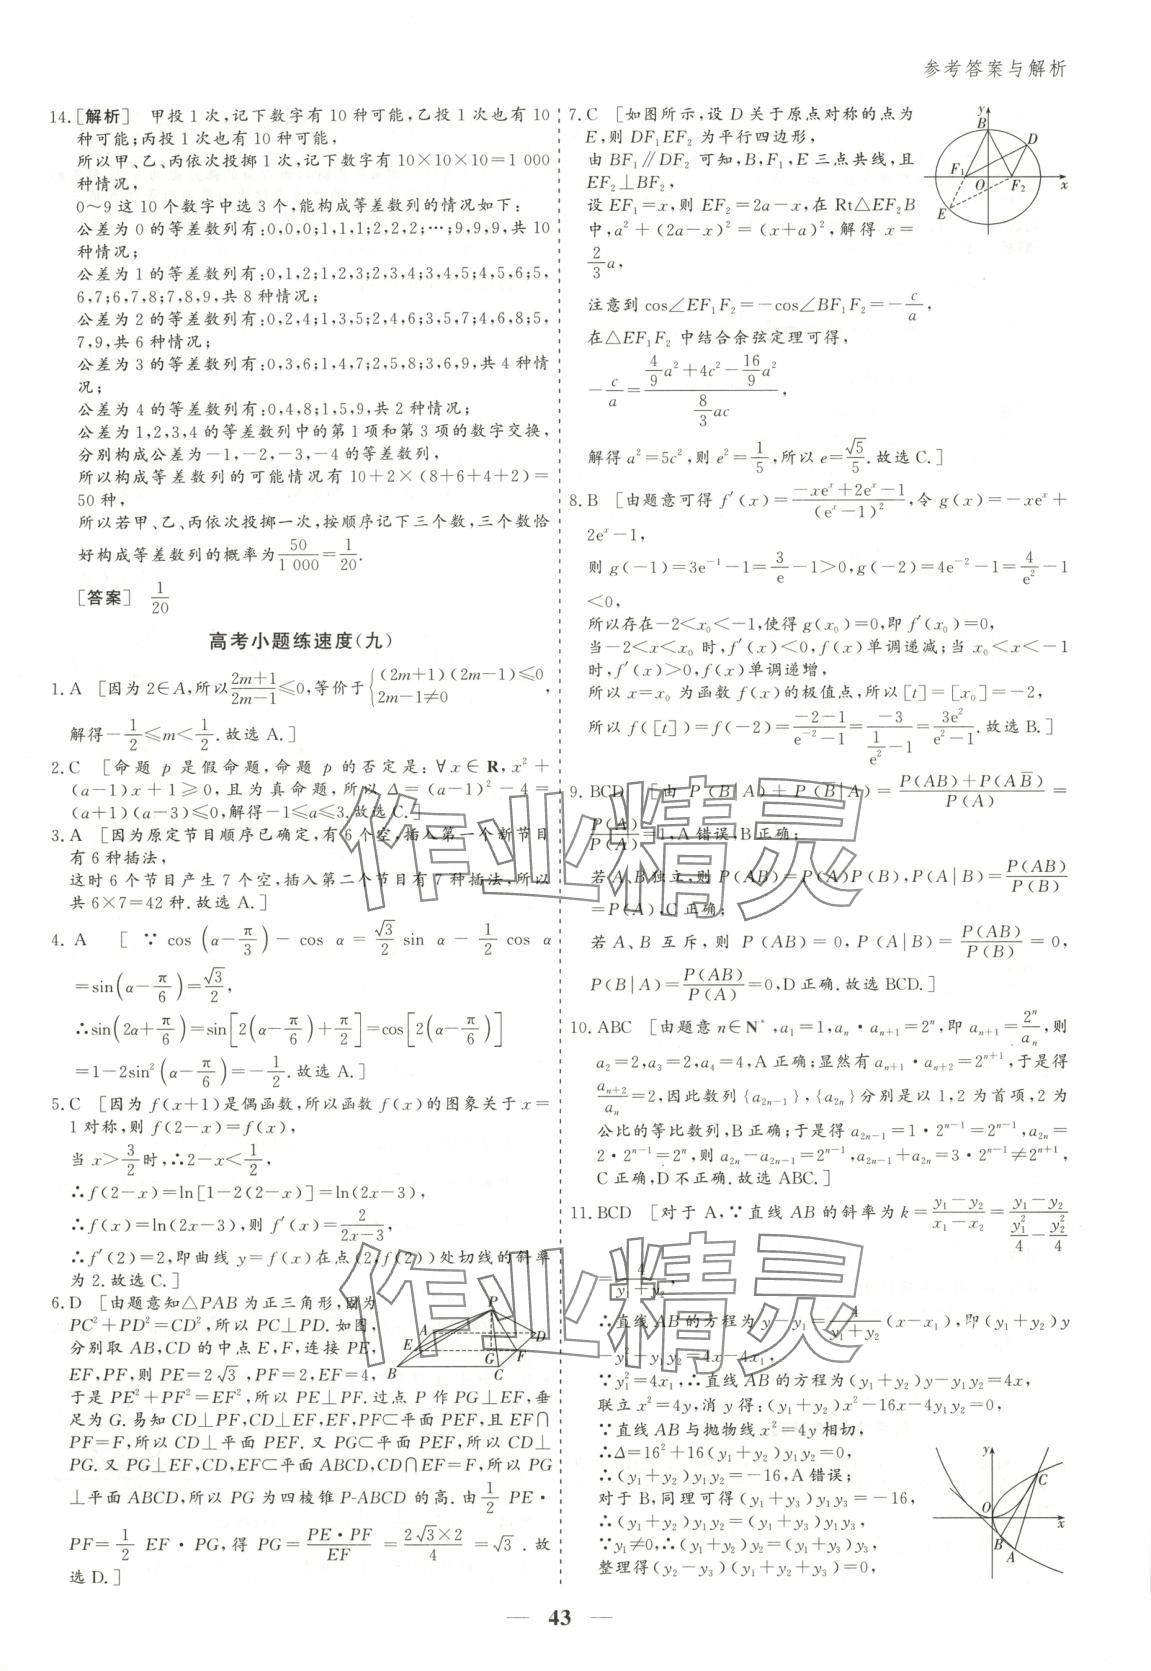 参考答案与解析
14.[解析] 甲投1次,记下数字有10种可能,乙投1次也有10
种可能;丙投1次也有10种可能,
所以甲、乙、丙依次投掷1次,记下数字有10×10×10=1 000
种情况,
0~9这10个数字中选3个,能构成等差数列的情况如下:
公差为0的等差数列有:0,0,0;1,1,1;2,2,2;…;9,9,9,共10
种情况;
公差为1的等差数列有:0,1,2;1,2,3;2,3,4;3,4,5;4,5,6;5,
6,7;6,7,8;7,8,9,共8种情况;
公差为2的等差数列有:0,2,4;1,3,5;2,4,6;3,5,7;4,6,8;5,
7,9,共6种情况;
公差为3的等差数列有:0,3,6;1,4,7;2,5,8;3,6,9,共4种情
况;
公差为4的等差数列有:0,4,8;1,5,9,共2种情况;
公差为1,2,3,4的等差数列中的第1项和第3项的数字交换,
分别构成公差为-1,-2,-3,-4的等差数列,
所以构成等差数列的可能情况有10+2×(8+6+4+2)=
50种,
所以若甲、乙、丙依次投掷一次,按顺序记下三个数,三个数恰
好构成等差数列的概率为50/1 000=1/20.
[答案] 1/20
高考小题练速度(九)
1.A [因为2∈A,所以(2m+1)/(2m-1)≤0,等价于{(2m+1)(2m-1)≤0
2m-1≠0,
解得-1/2≤m<1/2.故选A.]
2.C [命题p是假命题,命题p的否定是:∀x∈R,x²+
(a-1)x+1≥0,且为真命题,所以Δ=(a-1)²-4=
(a+1)(a-3)≤0,解得-1≤a≤3.故选C.]
3.A [因为原定节目顺序已确定,有6个空,插入第一个新节目
有6种插法,
这时6个节目产生7个空,插入第二个节目有7种插法,所以
共6×7=42种.故选A.]
4.A [∵cos(α-π/3)-cos α=√3/2 sin α-1/2 cos α
=sin(α-π/6)=√3/2,
∴sin(2α+π/6)=sin[2(α-π/6)+π/2]=cos[2(α-π/6)]
=1-2sin²(α-π/6)=-1/2.故选A.]
5.C [因为f(x+1)是偶函数,所以函数f(x)的图象关于x=
1对称,则f(2-x)=f(x),
当x>3/2时,∴2-x<1/2,
∴f(2-x)=ln[1-2(2-x)]=ln(2x-3),
∴f(x)=ln(2x-3),则f′(x)=2/(2x-3),
∴f′(2)=2,即曲线y=f(x)在点(2,f(2))处切线的斜率
为2.故选C.]
6.D [由题意知△PAB为正三角形,因为
PC²+PD²=CD²,所以PC⊥PD.如图,
分别取AB,CD的中点E,F,连接PE,
EF,PF,则PE=2√3,PF=2,EF=4,
于是PE²+PF²=EF²,所以PE⊥PF.过点P作PG⊥EF,垂
足为G.易知CD⊥PF,CD⊥EF,EF,PF⊂平面PEF,且EF∩
PF=F,所以CD⊥平面PEF.又PG⊂平面PEF,所以CD⊥
PG.又PG⊥EF,CD,EF⊂平面ABCD,CD∩EF=F,所以PG
⊥平面ABCD,所以PG为四棱锥P-ABCD的高.由1/2 PE·
PF=1/2 EF·PG,得PG=PE·PF/EF=2√3×2/4=√3.故
选D.]
P
A
D
E
F
G
B
C
7.C [如图所示,设D关于原点对称的点为
E,则DF₁EF₂为平行四边形,
由BF₁∥DF₂可知,B,F₁,E三点共线,且
EF₂⊥BF₂,
设EF₁=x,则EF₂=2a-x,在Rt△EF₂B
中,a²+(2a-x)²=(x+a)²,解得x=
2/3 a,
注意到cos∠EF₁F₂=-cos∠BF₁F₂=-c/a,
在△EF₁F₂中结合余弦定理可得,
-c/a=(4/9 a²+4c²-16/9 a²)/(8/3 ac),
解得a²=5c²,则e²=1/5,所以e=√5/5.故选C.]
y
B
D
F₁
O
F₂
x
E
8.B [由题意可得f′(x)=(-xeˣ+2eˣ-1)/(eˣ-1)²,令g(x)=-xeˣ+
2eˣ-1,
则g(-1)=3e⁻¹-1=3/e-1>0,g(-2)=4e⁻²-1=4/e²-1
<0,
所以存在-2<x₀<-1,使得g(x₀)=0,即f′(x₀)=0,
当-2<x<x₀时,f′(x)<0,f(x)单调递减;当x₀<x<-1
时,f′(x)>0,f(x)单调递增,
所以x=x₀为函数f(x)的极值点,所以[t]=[x₀]=-2,
所以f([t])=f(-2)=(-2-1)/(e⁻²-1)=-3/(1/e²-1)=3e²/(e²-1).故选B.]
9.BCD [由P(B|A)+P(B̄|A)=(P(AB)+P(AB̄))/P(A)=
P(A)/P(A)=1,A错误,B正确;
若A、B独立,则P(AB)=P(A)P(B),P(A|B)=P(AB)/P(B)
=P(A),C正确;
若A、B互斥,则P(AB)=0,P(A|B)=P(AB)/P(B)=0,
P(B|A)=P(AB)/P(A)=0,D正确.故选BCD.]
10.ABC [由题意n∈N*,a₁=1,aₙ·aₙ₊₁=2ⁿ,即aₙ₊₁=2ⁿ/aₙ,则
a₂=2,a₃=2,a₄=4,A正确;显然有aₙ₊₁·aₙ₊₂=2ⁿ⁺¹,于是得
aₙ₊₂/aₙ=2,因此数列{a₂ₙ₋₁},{a₂ₙ}分别是以1,2为首项,2为
公比的等比数列,B正确;于是得a₂ₙ₋₁=1·2ⁿ⁻¹=2ⁿ⁻¹,a₂ₙ=
2·2ⁿ⁻¹=2ⁿ,则a₂ₙ-a₂ₙ₋₁=2ⁿ⁻¹,a₂ₙ₋₁+a₂ₙ=3·2ⁿ⁻¹≠2ⁿ⁺¹,
C正确,D不正确.故选ABC.]
11.BCD [对于A,∵直线AB的斜率为k=(y₁-y₂)/(x₁-x₂)=(y₁-y₂)/(y₁²/4-y₂²/4)
=4/(y₁+y₂),
∴直线AB的方程为y-y₁=4/(y₁+y₂)(x-x₁),即(y₁+y₂)y
-y₁²-y₁y₂=4x-4x₁,
∵y₁²=4x₁,∴直线AB的方程为(y₁+y₂)y-y₁y₂=4x,
联立x²=4y,消y得:(y₁+y₂)x²-16x-4y₁y₂=0,
∵直线AB与抛物线x²=4y相切,
∴Δ=16²+16(y₁+y₂)y₁y₂=0,
∴(y₁+y₂)y₁y₂=-16,A错误;
对于B,同理可得(y₁+y₃)y₁y₃=-16,
∴(y₁+y₂)y₁y₂=(y₁+y₃)y₁y₃,
∵y₁≠0,∴(y₁+y₂)y₂=(y₁+y₃)y₃,
整理得(y₂-y₃)(y₁+y₂+y₃)=0,
y
C
O
x
B
A
作业精灵
作业精灵
43